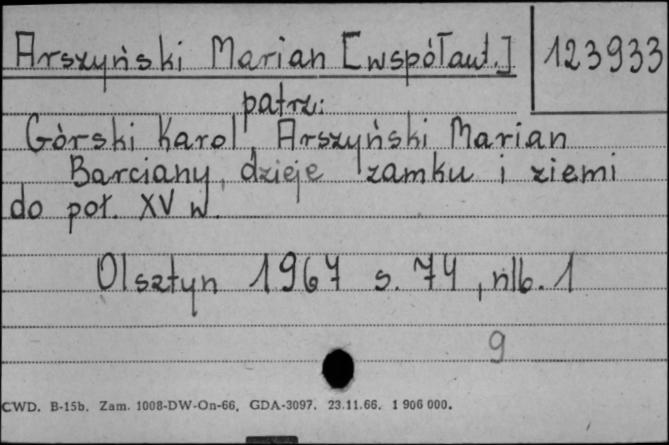 Arszyński Marian [współaut.] 123933
patrz:
Górski Karol, Arszyński Marian
Barciany, dzieje zamku i ziemi
do poł. XV w.
Olsztyn 1967 s. 74, nlb. 1
9
CWD. B-15b. Zam. 1008-DW-On-66. GDA-3097. 23.11.66. 1 906 000.